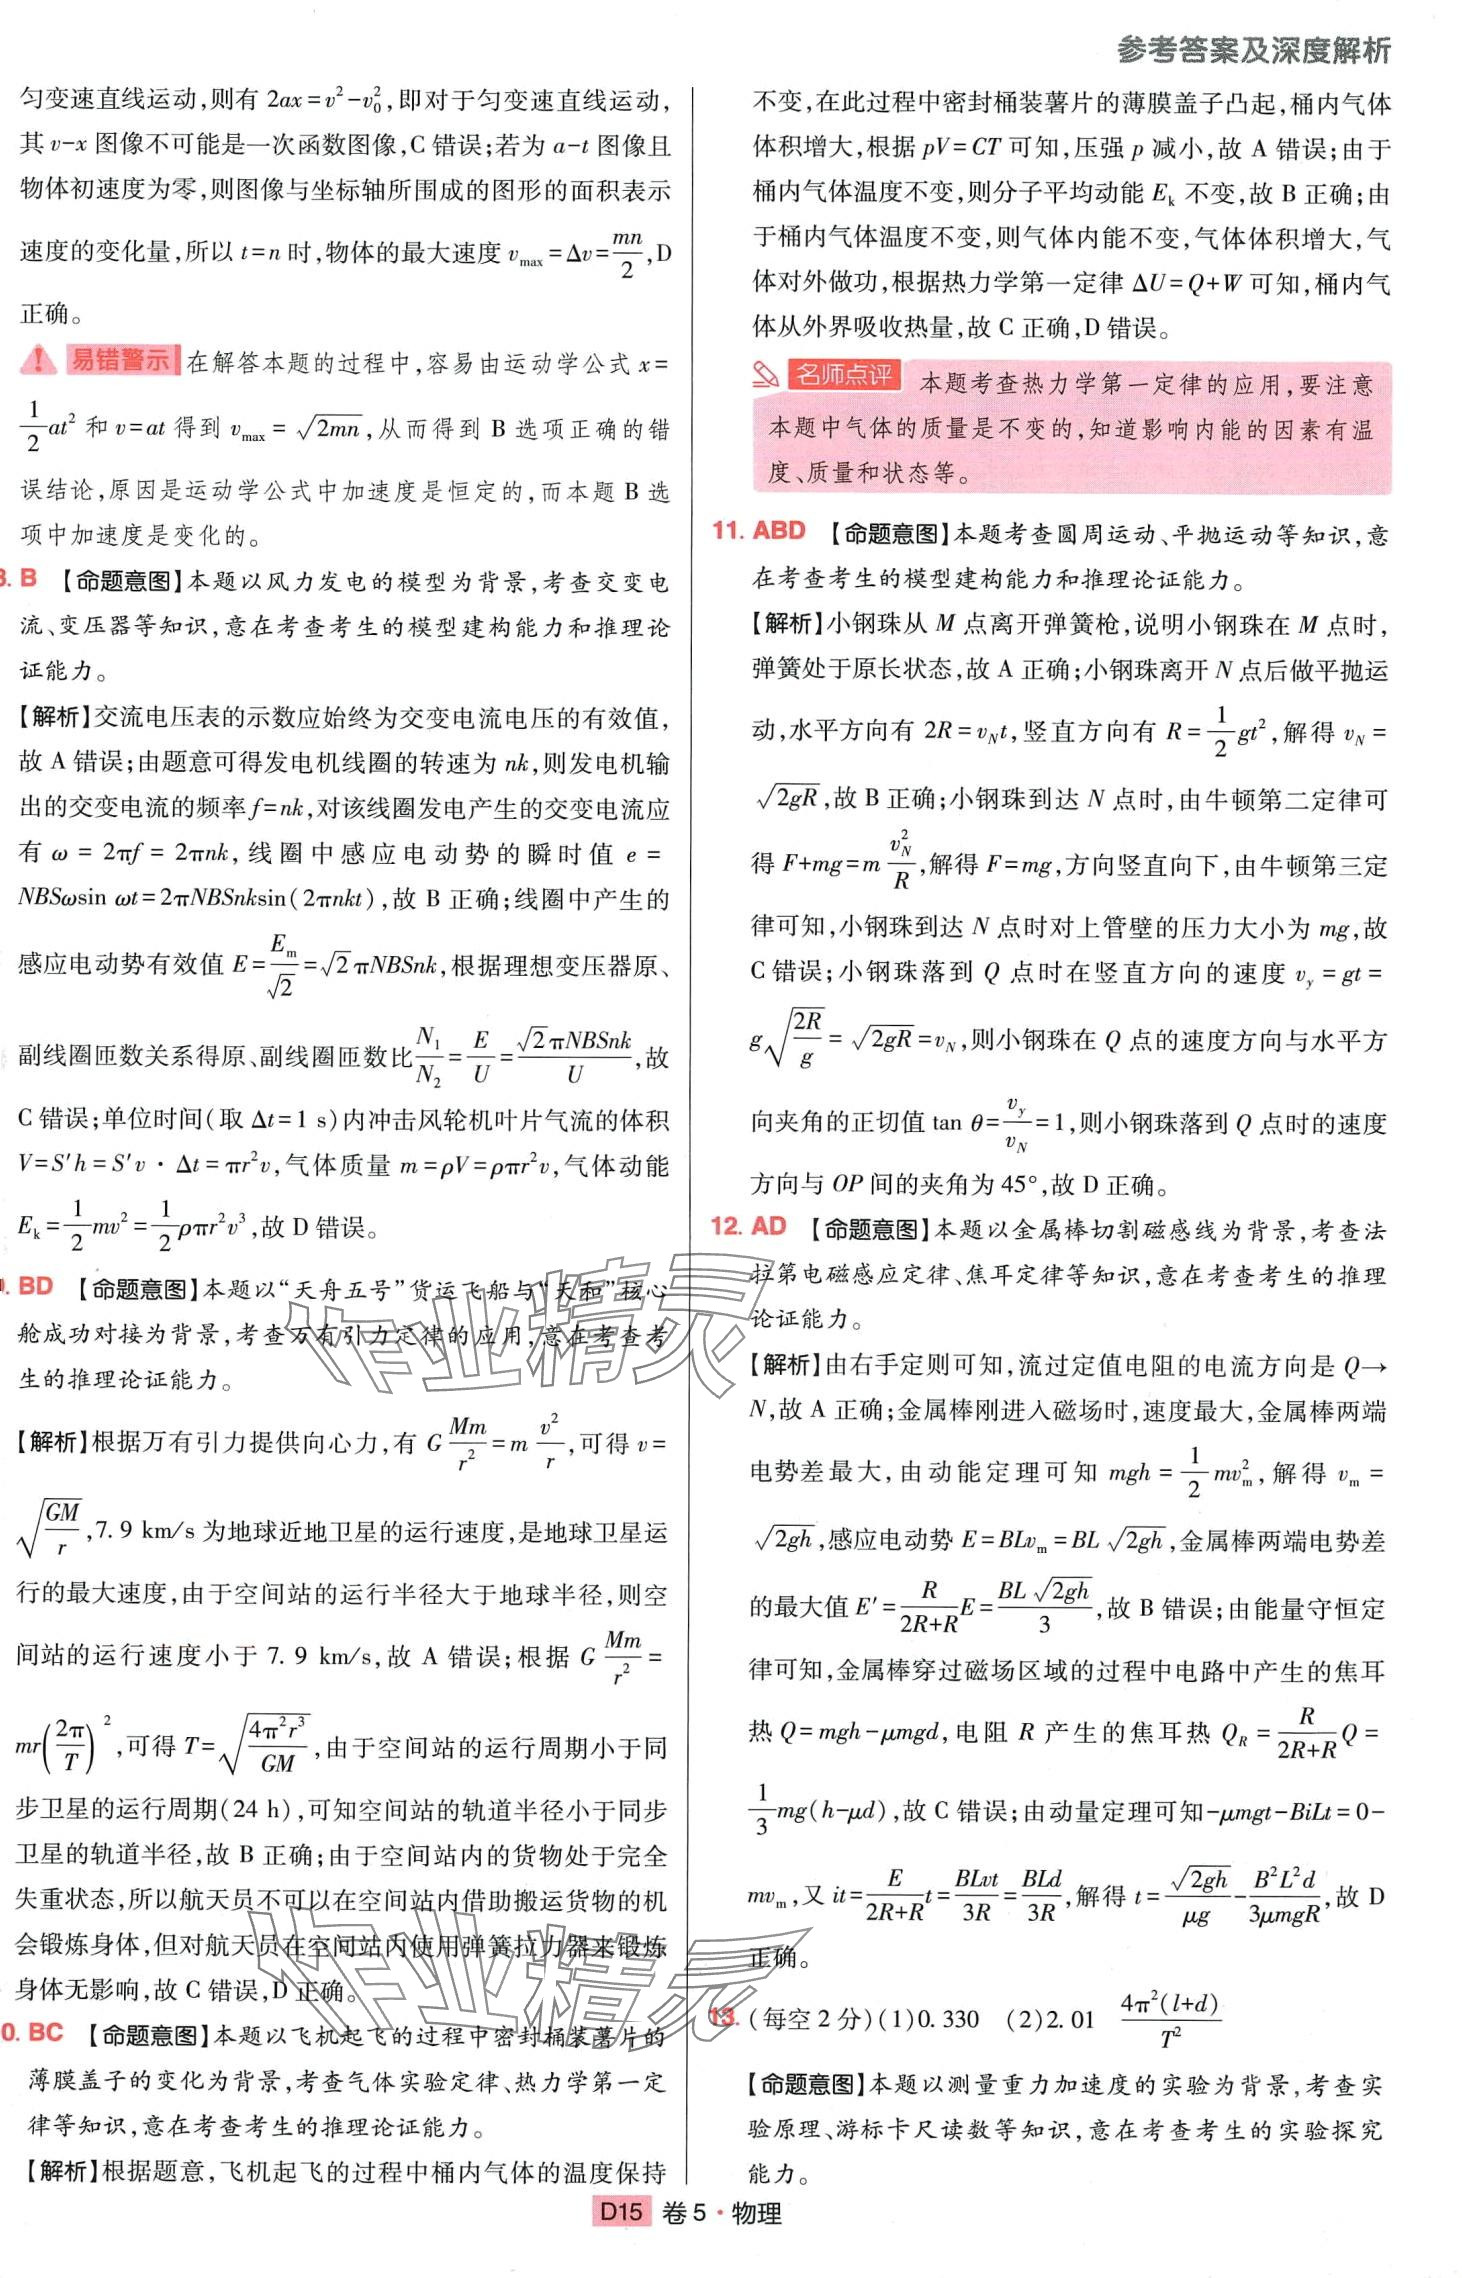 参考答案及深度解析
匀变速直线运动,则有 2ax=v²-v₀²,即对于匀变速直线运动,
其 v-x 图像不可能是一次函数图像,C 错误;若为 a-t 图像且
物体初速度为零,则图像与坐标轴所围成的图形的面积表示
速度的变化量,所以 t=n 时,物体的最大速度 vmax=Δv=mn/2,D
正确。
易错警示 在解答本题的过程中,容易由运动学公式 x=
1/2at² 和 v=at 得到 vmax=√(2mn),从而得到 B 选项正确的错
误结论,原因是运动学公式中加速度是恒定的,而本题 B 选
项中加速度是变化的。
8. B 【命题意图】本题以风力发电的模型为背景,考查交变电
流、变压器等知识,意在考查考生的模型建构能力和推理论
证能力。
【解析】交流电压表的示数应始终为交变电流电压的有效值,
故 A 错误;由题意可得发电机线圈的转速为 nk,则发电机输
出的交变电流的频率 f=nk,对该线圈发电产生的交变电流应
有 ω = 2πf = 2πnk,线圈中感应电动势的瞬时值 e =
NBSωsin ωt=2πNBSnksin(2πnkt),故 B 正确;线圈中产生的
感应电动势有效值 E=Em/√2=√2πNBSnk,根据理想变压器原、
副线圈匝数关系得原、副线圈匝数比N₁/N₂=E/U=√2πNBSnk/U,故
C 错误;单位时间(取 Δt=1 s)内冲击风轮机叶片气流的体积
V=S′h=S′v·Δt=πr²v,气体质量 m=ρV=ρπr²v,气体动能
Ek=1/2mv²=1/2ρπr²v³,故 D 错误。
9. BD 【命题意图】本题以“天舟五号”货运飞船与“天和”核心
舱成功对接为背景,考查万有引力定律的应用,意在考查考
生的推理论证能力。
【解析】根据万有引力提供向心力,有 G Mm/r²=m v²/r,可得 v=
√(GM/r),7.9 km/s 为地球近地卫星的运行速度,是地球卫星运
行的最大速度,由于空间站的运行半径大于地球半径,则空
间站的运行速度小于 7.9 km/s,故 A 错误;根据 G Mm/r²=
mr(2π/T)²,可得 T=√(4π²r³/GM),由于空间站的运行周期小于同
步卫星的运行周期(24 h),可知空间站的轨道半径小于同步
卫星的轨道半径,故 B 正确;由于空间站内的货物处于完全
失重状态,所以航天员不可以在空间站内借助搬运货物的机
会锻炼身体,但对航天员在空间站内使用弹簧拉力器来锻炼
身体无影响,故 C 错误,D 正确。
0. BC 【命题意图】本题以飞机起飞的过程中密封桶装薯片的
薄膜盖子的变化为背景,考查气体实验定律、热力学第一定
律等知识,意在考查考生的推理论证能力。
【解析】根据题意,飞机起飞的过程中桶内气体的温度保持
不变,在此过程中密封桶装薯片的薄膜盖子凸起,桶内气体
体积增大,根据 pV=CT 可知,压强 p 减小,故 A 错误;由于
桶内气体温度不变,则分子平均动能 Ek 不变,故 B 正确;由
于桶内气体温度不变,则气体内能不变,气体体积增大,气
体对外做功,根据热力学第一定律 ΔU=Q+W 可知,桶内气
体从外界吸收热量,故 C 正确,D 错误。
名师点评 本题考查热力学第一定律的应用,要注意
本题中气体的质量是不变的,知道影响内能的因素有温
度、质量和状态等。
11. ABD 【命题意图】本题考查圆周运动、平抛运动等知识,意
在考查考生的模型建构能力和推理论证能力。
【解析】小钢珠从 M 点离开弹簧枪,说明小钢珠在 M 点时,
弹簧处于原长状态,故 A 正确;小钢珠离开 N 点后做平抛运
动,水平方向有 2R=vNt,竖直方向有 R=1/2gt²,解得 vN=
√(2gR),故 B 正确;小钢珠到达 N 点时,由牛顿第二定律可
得 F+mg=m vN²/R,解得 F=mg,方向竖直向下,由牛顿第三定
律可知,小钢珠到达 N 点时对上管壁的压力大小为 mg,故
C 错误;小钢珠落到 Q 点时在竖直方向的速度 vy=gt=
g√(2R/g)=√(2gR)=vN,则小钢珠在 Q 点的速度方向与水平方
向夹角的正切值 tan θ=vy/vN=1,则小钢珠落到 Q 点时的速度
方向与 OP 间的夹角为 45°,故 D 正确。
12. AD 【命题意图】本题以金属棒切割磁感线为背景,考查法
拉第电磁感应定律、焦耳定律等知识,意在考查考生的推理
论证能力。
【解析】由右手定则可知,流过定值电阻的电流方向是 Q→
N,故 A 正确;金属棒刚进入磁场时,速度最大,金属棒两端
电势差最大,由动能定理可知 mgh=1/2mvm²,解得 vm=
√(2gh),感应电动势 E=BLvm=BL√(2gh),金属棒两端电势差
的最大值 E′=R/(2R+R)E=BL√(2gh)/3,故 B 错误;由能量守恒定
律可知,金属棒穿过磁场区域的过程中电路中产生的焦耳
热 Q=mgh-μmgd,电阻 R 产生的焦耳热 QR=R/(2R+R)Q=
1/3mg(h-μd),故 C 错误;由动量定理可知-μmgt-BiLt=0-
mvm,又 it=E/(2R+R)t=BLvt/3R=BLd/3R,解得 t=√(2gh)/μg-B²L²d/3μmgR,故 D
正确。
13. (每空 2 分)(1)0.330 (2)2.01 4π²(l+d)/T²
【命题意图】本题以测量重力加速度的实验为背景,考查实
验原理、游标卡尺读数等知识,意在考查考生的实验探究
能力。
D15 卷 5·物理
作业精灵
作业精灵